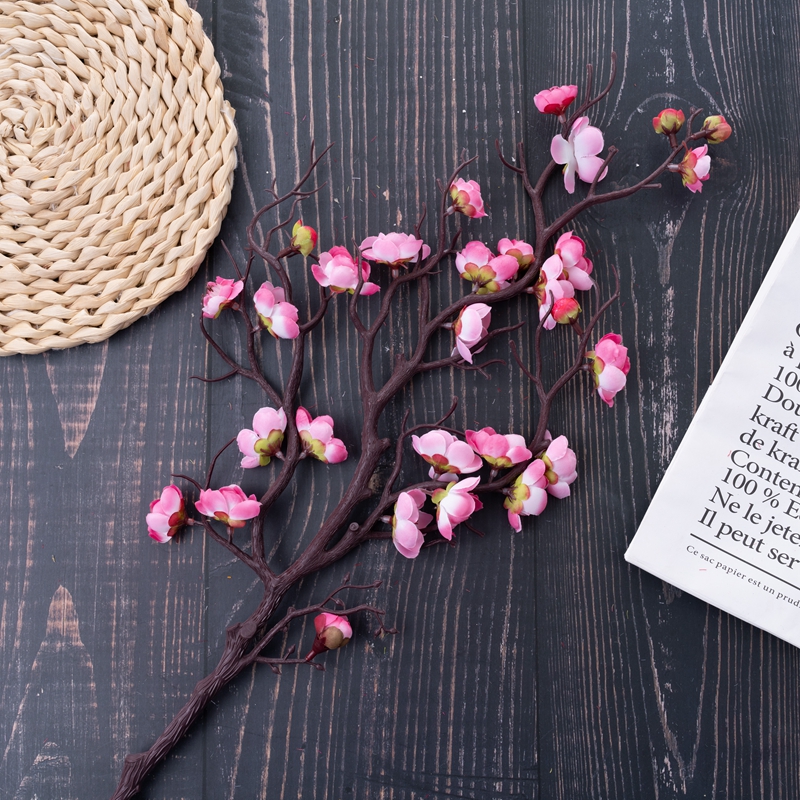 à
100
Dou
kraft
de kra
Conten
100 % E
Ne le jete
Il peut ser
Ce sac papier est un prud